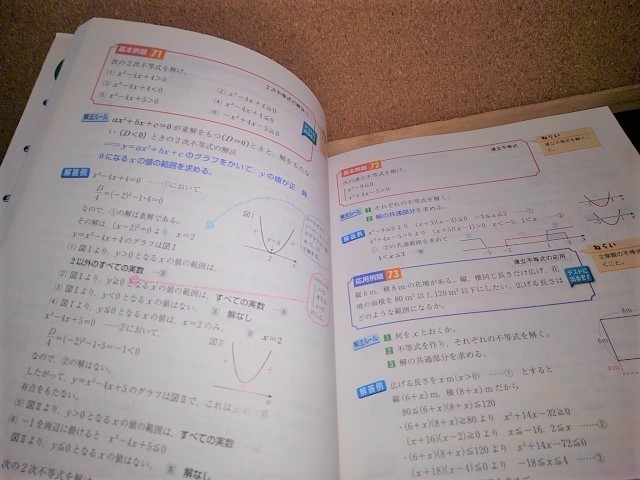 基本例題 71
次の2次不等式を解け。
(1) x²-4x+4>0
(2) x²-4x+4≧0
(3) x²-4x+4<0
(4) x²-4x+4≦0
(5) x²-4x+5>0
(6) -x²+4x-5≧0
解法ルール ax²+bx+c=0 が重解をもつ(D=0)ときと, 解をもたな
い(D<0)ときの2次不等式の解法
⟹y=ax²+bx+c のグラフをかいて, yの値が正, 負,
0になるxの値の範囲を求める。
解答例 x²-4x+4=0 ……①において,
D/4=(-2)²-1・4=0
なので, ①の解は重解である。
その解は, (x-2)²=0 より x=2
y=x²-4x+4のグラフは図I
(1) 図Iより, y>0となるxの値の範囲は,
2以外のすべての実数
(2) 図Iより, y≧0 となるxの値の範囲は, すべての実数
(3) 図Iより, y<0となるxの値はない。 解なし
(4) 図Iより, y≦0となるxの値は, x=2のみ。 x=2
x²-4x+5=0 ……②において,
D/4=(-2)²-1・5=-1<0
なので, ②の解はない。
したがって, y=x²-4x+5のグラフは図IIで, これはx軸と共
有点をもたない。
(5) 図IIより, y>0となるxの値の範囲は, すべての実数
(6) -1を両辺に掛けると x²-4x+5≦0
図IIより, y≦0となるxの値はない。 解なし
次の2次不等式を解け
図I
y=0
2
図II
基本例題 72
連立不等式
次の連立不等式を解け。
x²-9≦0
x²+4x-5>0
ねらい
連立不等式を解く
解法ルール 1 それぞれの不等式を解く。
2 解の共通部分を求める。
解答例 x²-9≦0より (x+3)(x-3)≦0 -3≦x≦3
x²+4x-5>0より (x+5)(x-1)>0 x<-5, 1<x
①, ②の共通範囲を求めて
1<x≦3
応用例題 73
連立不等式の応用
テストに
出るぞ!
縦6m, 横8mの花壇がある。縦, 横同じ長さだけ広げ, 花
壇の面積を80m²以上120m²以下にしたい。広げる長さは
どのような範囲になるか。
ねらい
解法ルール 1 何をxとおくか。
2 不等式を作り, それぞれの不等式を解く。
3 解の共通部分を求める。
解答例 広げる長さをx m(x>0) ……① とすると
縦(6+x)m, 横(8+x)mだから
80≦(6+x)(8+x)≦120
・(6+x)(8+x)≧80より x²+14x-32≧0
(x+16)(x-2)≧0より x≦-16, 2≦x ……②
・(6+x)(8+x)≦120より x²+14x-72≦0
(x+18)(x-4)≦0より -18≦x≦4 ……③
8m